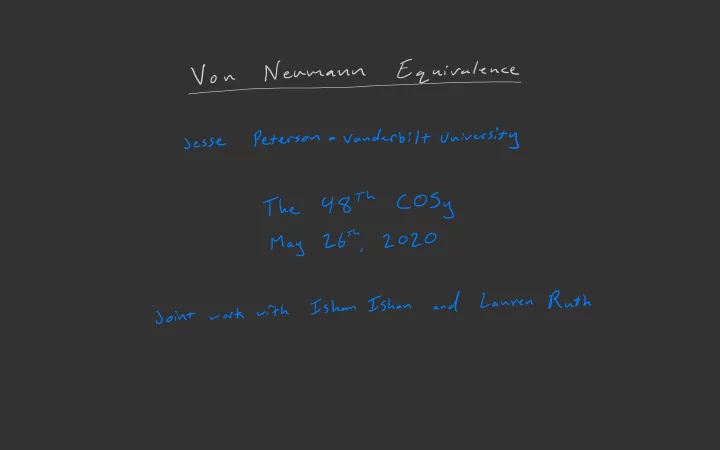 Von Neumann Equivalence
Jesse Peterson - Vanderbilt University
The 48Th COSy
May 26th, 2020
Joint work with Ishan Ishan and Lauren Ruth